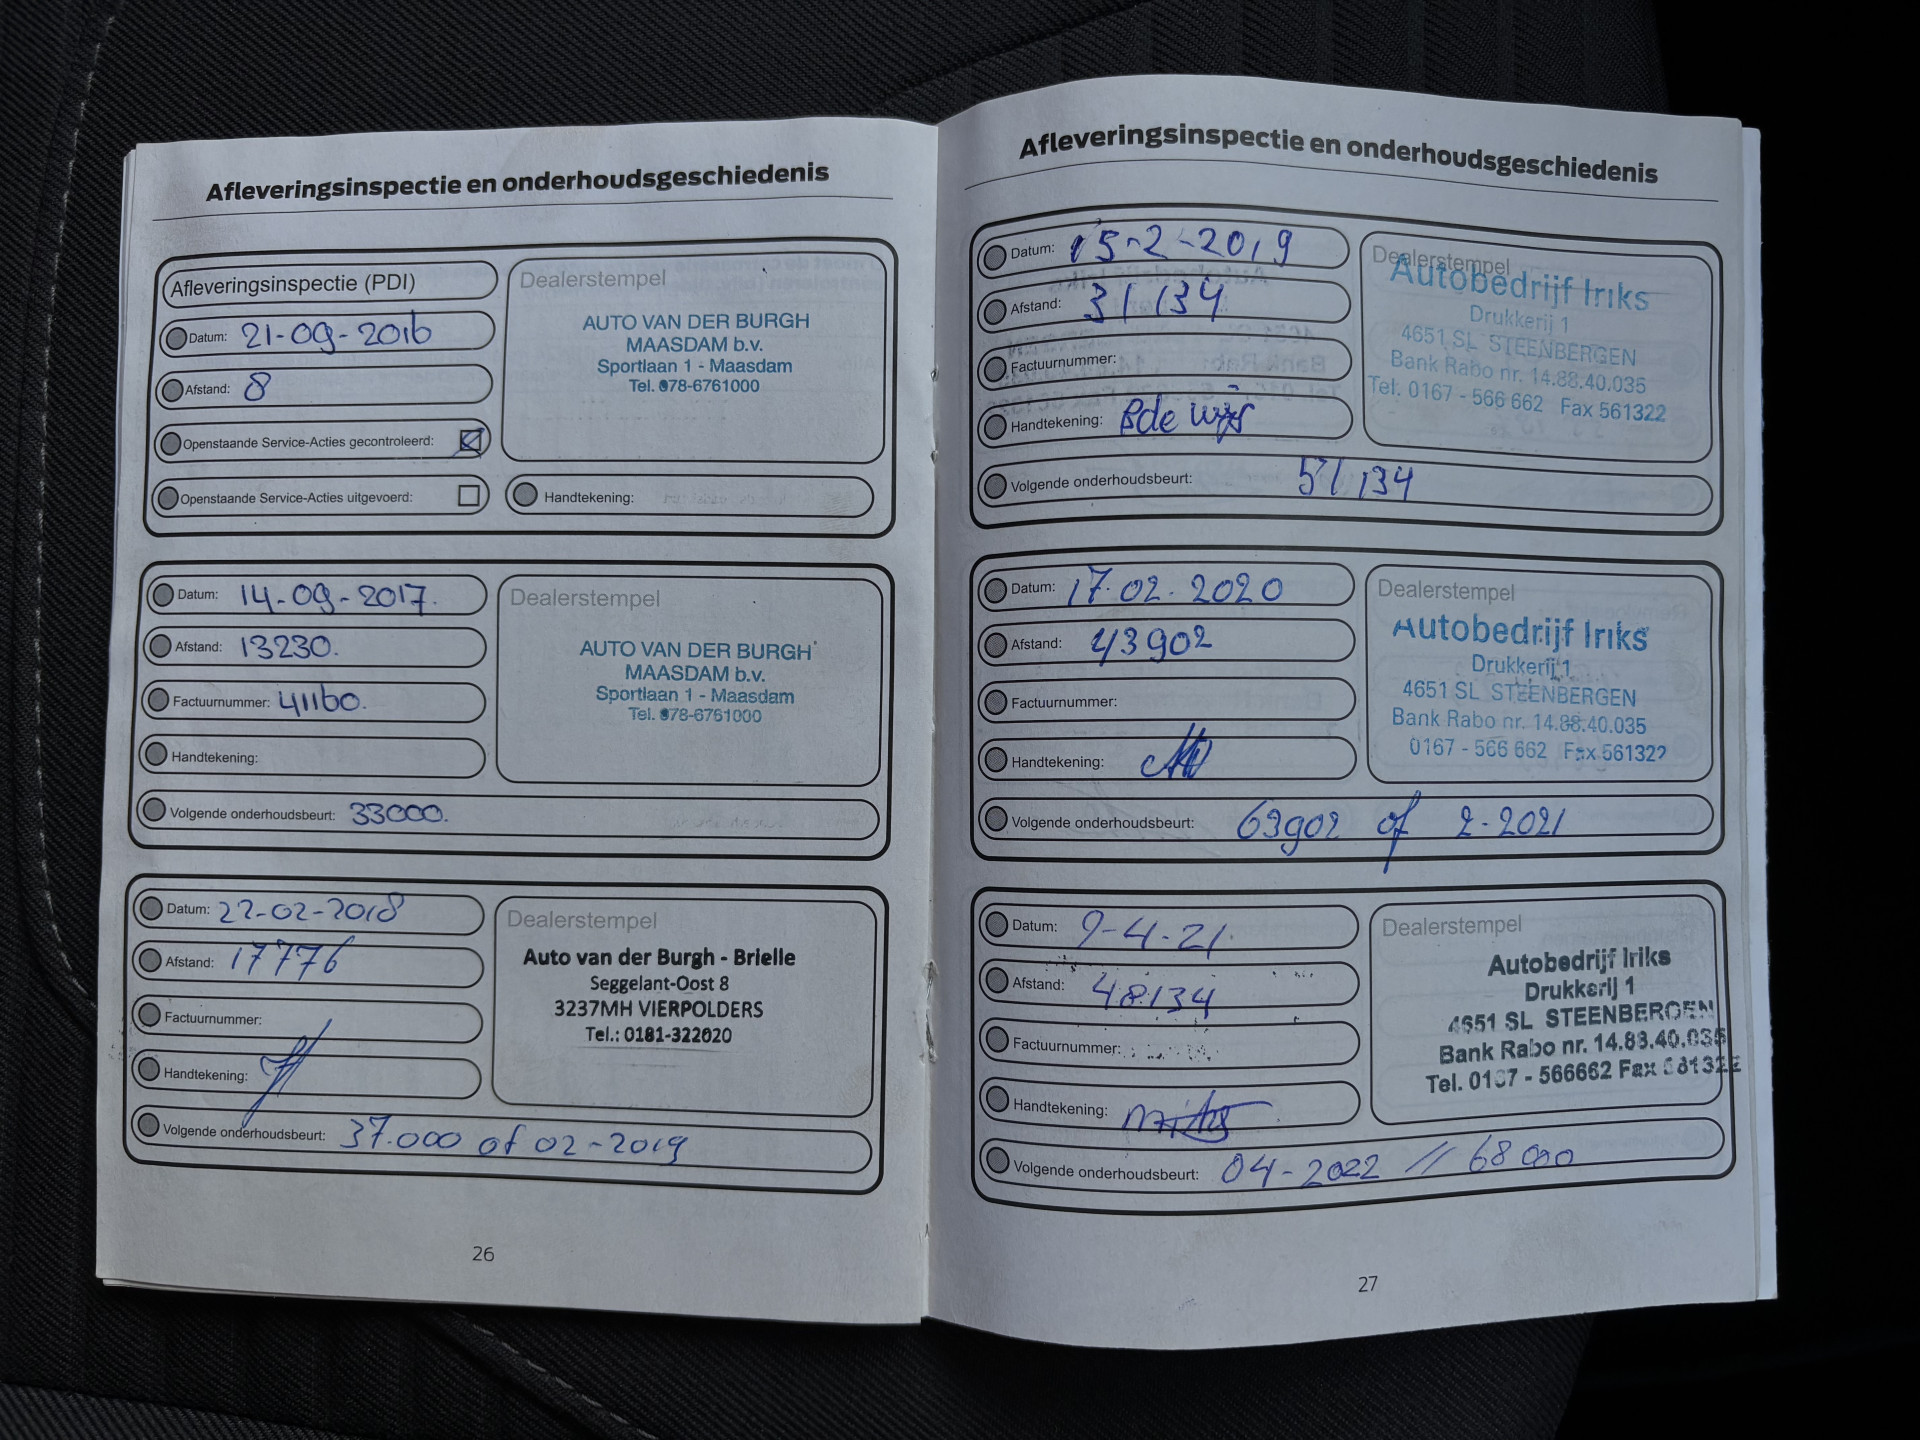 Afleveringsinspectie en onderhoudsgeschiedenis
Afleveringsinspectie (PDI)
Datum: 21-09-2016
Afstand: 8
Openstaande Service-Acties gecontroleerd:
Openstaande Service-Acties uitgevoerd:
Dealerstempel
AUTO VAN DER BURGH
MAASDAM b.v.
Sportlaan 1 - Maasdam
Tel. 078-6761000
Handtekening:
Datum: 14-09-2017.
Afstand: 13230.
Factuurnummer: 41160.
Handtekening:
Volgende onderhoudsbeurt: 33000.
Dealerstempel
AUTO VAN DER BURGH
MAASDAM b.v.
Sportlaan 1 - Maasdam
Tel. 078-6761000
Datum: 22-02-2018
Afstand: 17776
Factuurnummer:
Handtekening:
Volgende onderhoudsbeurt: 37.000 of 02-2019
Dealerstempel
Auto van der Burgh - Brielle
Seggelant-Oost 8
3237MH VIERPOLDERS
Tel.: 0181-322020
26
Afleveringsinspectie en onderhoudsgeschiedenis
Datum: 15-2-2019
Afstand: 31134
Factuurnummer:
Handtekening:
Volgende onderhoudsbeurt: 51134
Dealerstempel
Autobedrijf Iriks
Drukkerij 1
4651 SL STEENBERGEN
Bank Rabo nr. 14.88.40.035
Tel. 0167 - 566 662 Fax 561322
Datum: 17.02.2020
Afstand: 43902
Factuurnummer:
Handtekening:
Volgende onderhoudsbeurt: 63902 of 2-2021
Dealerstempel
Autobedrijf Iriks
Drukkerij 1
4651 SL STEENBERGEN
Bank Rabo nr. 14.88.40.035
0167 - 566 662 Fax 561322
Datum: 9-4-21.
Afstand: 48134
Factuurnummer:
Handtekening:
Volgende onderhoudsbeurt: 04-2022 // 68000
Dealerstempel
Autobedrijf Iriks
Drukkerij 1
4651 SL STEENBERGEN
Bank Rabo nr. 14.88.40.035
Tel. 0167 - 566662 Fax 561322
27